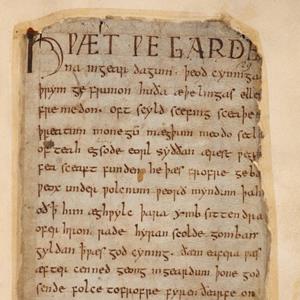 HǷÆT ǷE GARDE
na ingear dagum · þeod cyninga
þrym ge frunon huða æþelingas elle
fre medon · oft scyld scefing sceaþe
þreatum monegū mægþum meodo setla
of teah egsode eorl syððan ærest ƿea
fea sceaft funden he þæs frofre geb
ƿeox under ƿolcnum ƿeorð myndum þah
oð þ him æghƿylc þara ymb sittendra
ofer hron rade hyran scolde gomban
gyldan þ ƿæs god cyning · ðæm eafera ƿæs
æfter cenned geong ingeardum þone god
sende folce tofrofre fyren ðearfe on